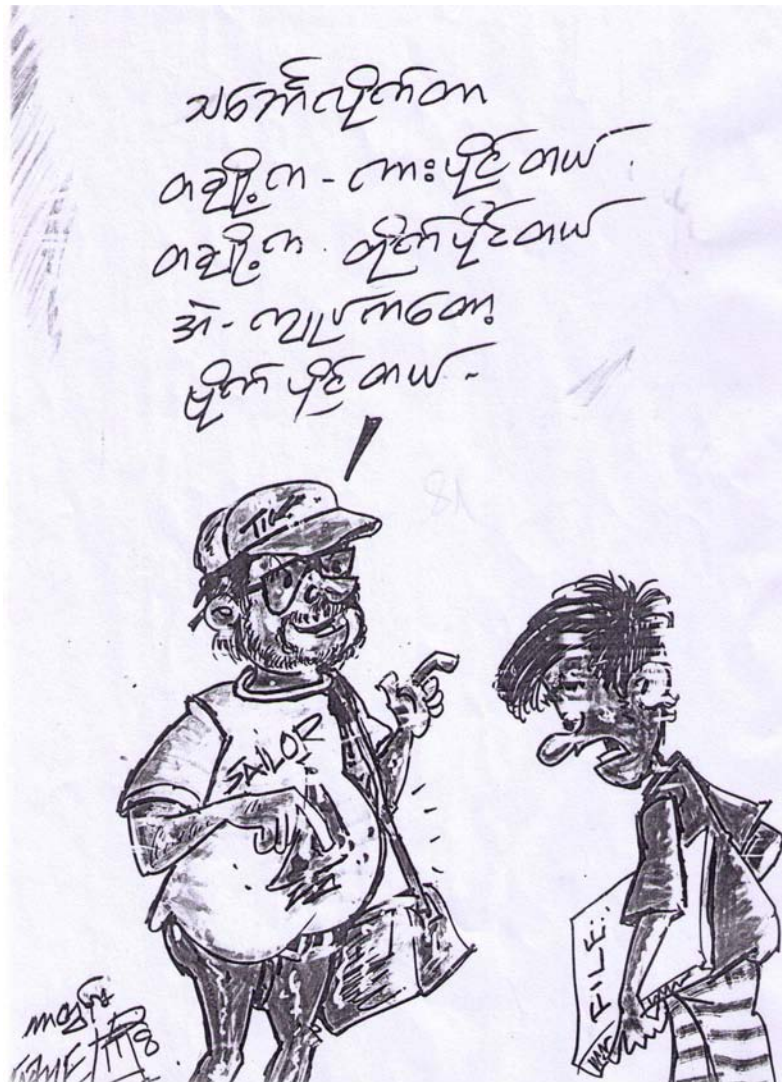 သင်္ဘောလိုက်တာ
တချို့က - ကားပိုင်တယ်
တချို့က . တိုက်ပိုင်တယ်
အဲ - ကျုပ်ကတော့
ဗိုက် ပိုင်တယ် -
TIK
SAILOR
FILE:
ကာတွန်း